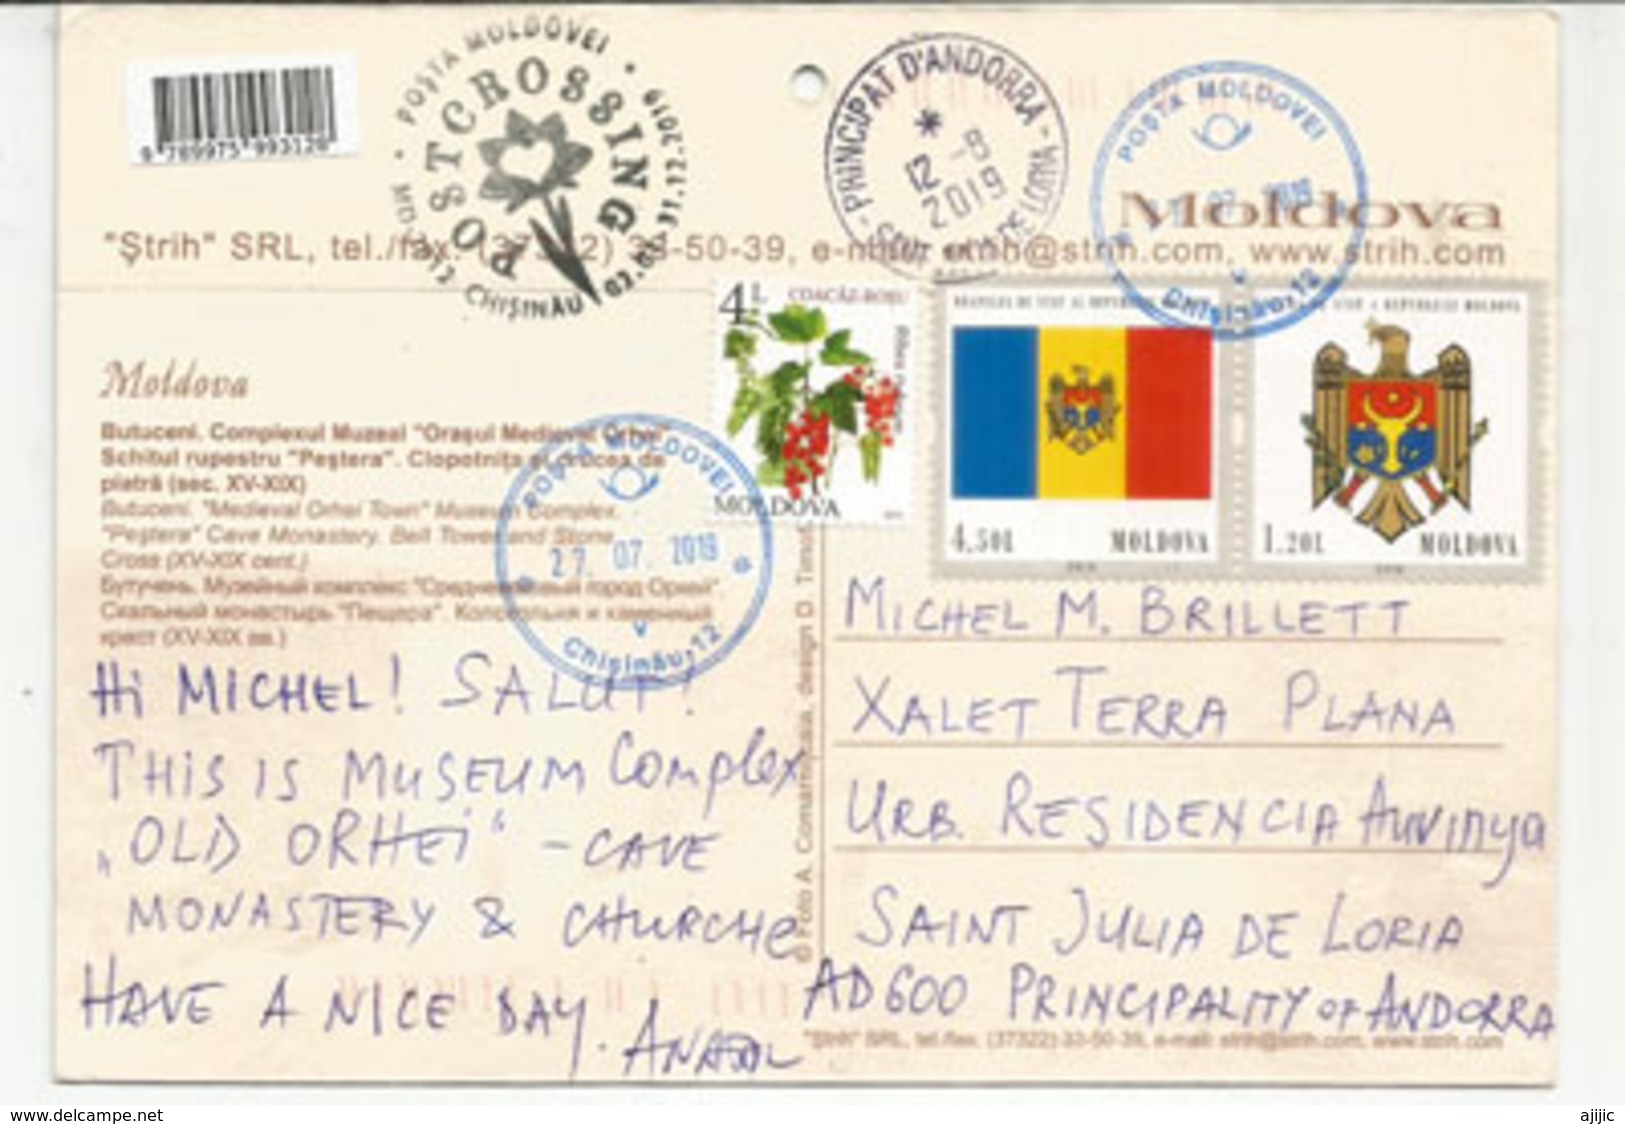 POȘTA MOLDOVEI
POSTCROSSING
MD-2012 CHIȘINĂU
31.12.2019
9 789975 993128
PRINCIPAT D'ANDORRA
12 -8
2019
DE LORIA
POȘTA MOLDOVEI
07 2019
Chișinău-12
Moldova
"Ștrih" SRL, tel./fax. (37322) 33-50-39, e-mail: strih@strih.com, www.strih.com
4L COACĂZ-ROȘU
MOLDOVA
4.50L MOLDOVA
1.20L MOLDOVA
Moldova
Butuceni. Complexul Muzeal "Orașul Medieval Orhei"
Schitul rupestru "Peștera". Clopotnița și crucea de
piatră (sec. XV-XIX)
Butuceni. "Medieval Orhei Town" Museum Complex.
"Peștera" Cave Monastery. Bell Tower and Stone
Cross (XV-XIX cent.)
Бутучень. Музейный комплекс "Средневековый город Орхей".
Скальный монастырь "Пещера". Колокольня и каменный
крест (XV-XIX вв.)
POȘTA MOLDOVEI
27. 07. 2019
Chișinău-12
Hi MICHEL! SALUT!
THIS IS MUSEUM COMPLEX
„OLD ORHEI" - CAVE
MONASTERY & CHURCHE
HAVE A NICE DAY.
MICHEL M. BRILLETT
XALET TERRA PLANA
URB. RESIDENCIA Auvinya
SAINT JULIA DE LORIA
AD600 PRINCIPALITY OF ANDORRA
"Ștrih" SRL, tel./fax: (37322) 33-50-39, e-mail: strih@strih.com, www.strih.com
www.delcampe.net
ajijic